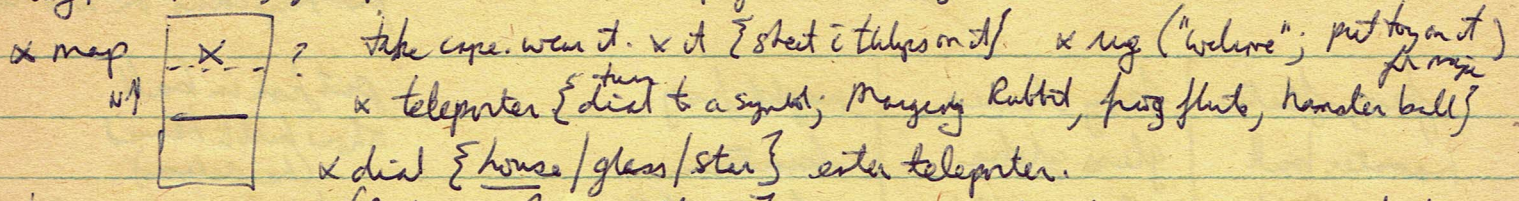 x map X ? take cape. wear it. x it {sheet c tulips on it} x rug ("Welcome"; put toy on it)
N↑ x teleporter {turn dial to a symbol; Margery Rabbit, frog flute, hamster ball} for magic
x dial {house/glass/star} enter teleporter.